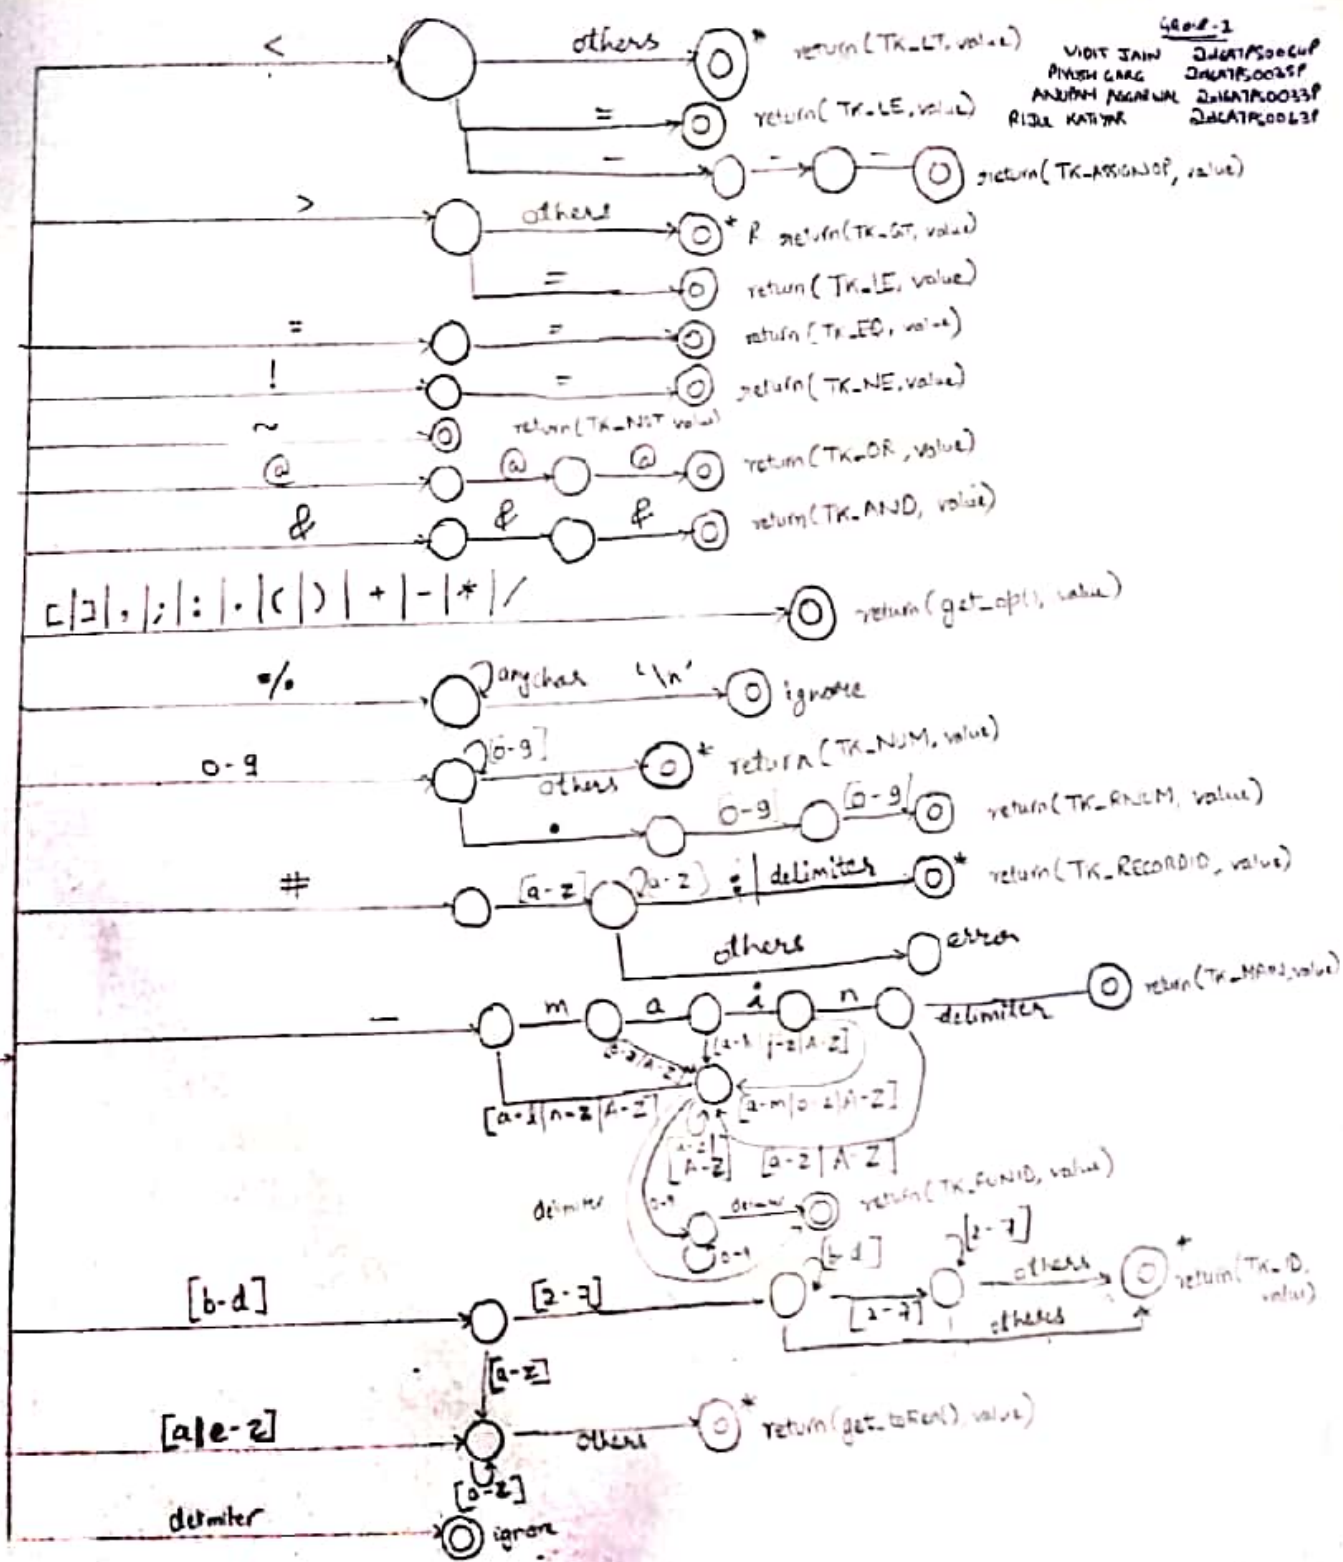 Group-1
VIDIT JAIN
PIYUSH GARG
ANUPAM AGGARWAL
RIJUL KATIYAR
< others * return(TK_LT, value)
= return(TK_LE, value)
- - - return(TK_ASSIGNOP, value)
> others * R return(TK_GT, value)
= return(TK_LE, value)
= = return(TK_EQ, value)
! = return(TK_NE, value)
~ return(TK_NOT value)
@ @ @ return(TK_OR, value)
& & & return(TK_AND, value)
[|]|,|;|:|.|(|)|+|-|*|/ return(get_op(), value)
% anychar '\n' ignore
0-9 [0-9] others * return(TK_NUM, value)
. [0-9] [0-9] return(TK_RNUM, value)
# [a-z] [a-z] :|delimiter * return(TK_RECORDID, value)
others error
_ m a i n delimiter return(TK_MAIN, value)
[a-z|A-Z] [a-h|j-z|A-Z]
[a-l|n-z|A-Z] [a-m|o-z|A-Z]
[a-z|A-Z] [a-z|A-Z]
delimiter 0-9 delimiter return(TK_FUNID, value)
0-9
[b-d] [2-7] [b-d] [2-7] [2-7] others * return(TK_ID, value)
others
[a-z]
[a|e-z] others * return(get_token(), value)
[a-z]
delimiter ignore